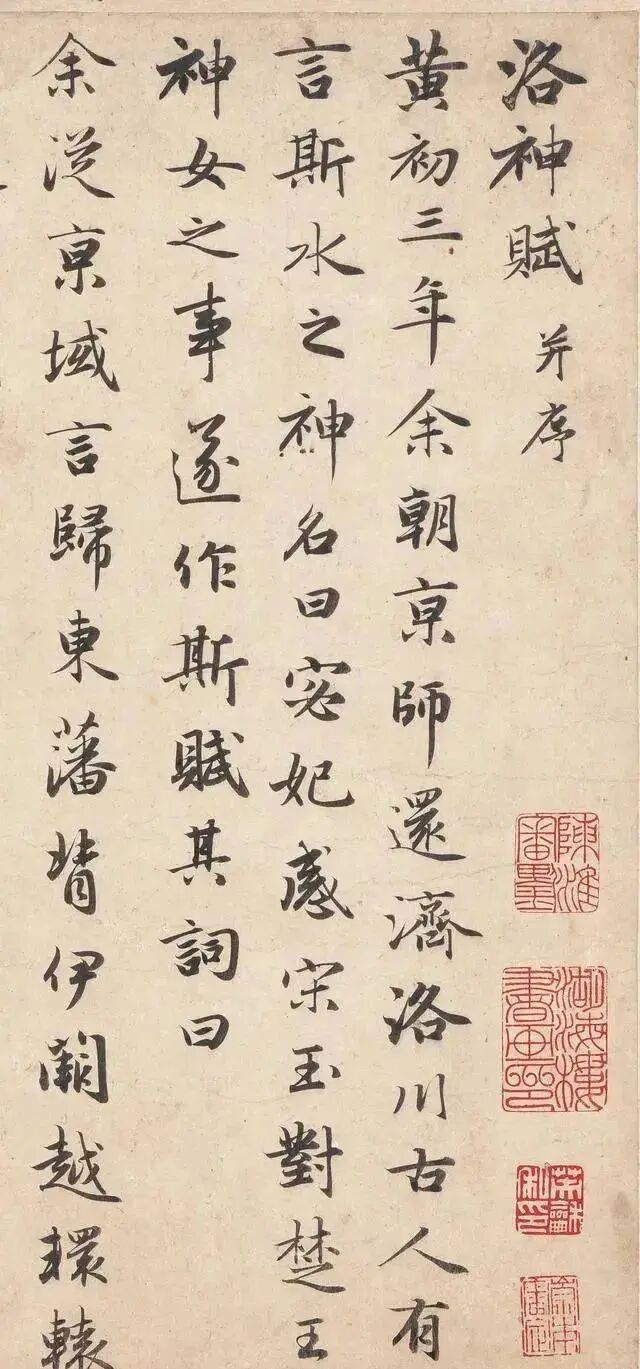 洛神賦并序
黄初三年余朝京師還濟洛川古人有
言斯水之神名曰宓妃感宋玉對楚王
神女之事遂作斯賦其詞曰
余從京域言歸東藩背伊闕越轘轅
陳淮
審墨
湖海樓
書畫印